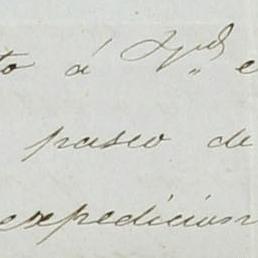 to á
paseo de
expedicion